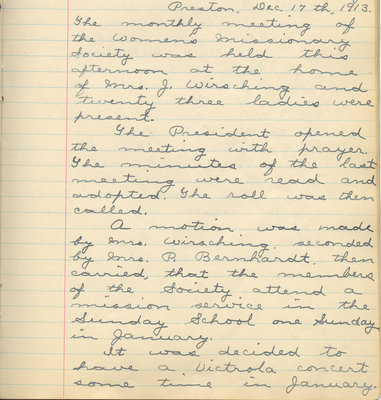 Preston, Dec, 17 th, 1913.
The monthly meeting of
the Womens Missionary
Society was held this
afternoon at the home
of Mrs. J. Wirsching and
twenty three ladies were
present.
The President opened
the meeting with prayer.
The minutes of the last
meeting were read and
adopted. The roll was then
called.
A motion was made
by Mrs. Wirsching, seconded
by Mrs. P. Bernhardt, then
carried, that the members
of the Society attend a
mission service in the
Sunday School one Sunday
in January.
It was decided to
have a Victrola concert
some time in January.